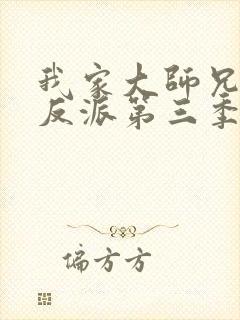 我家大師兄
反派第三季
偏方方